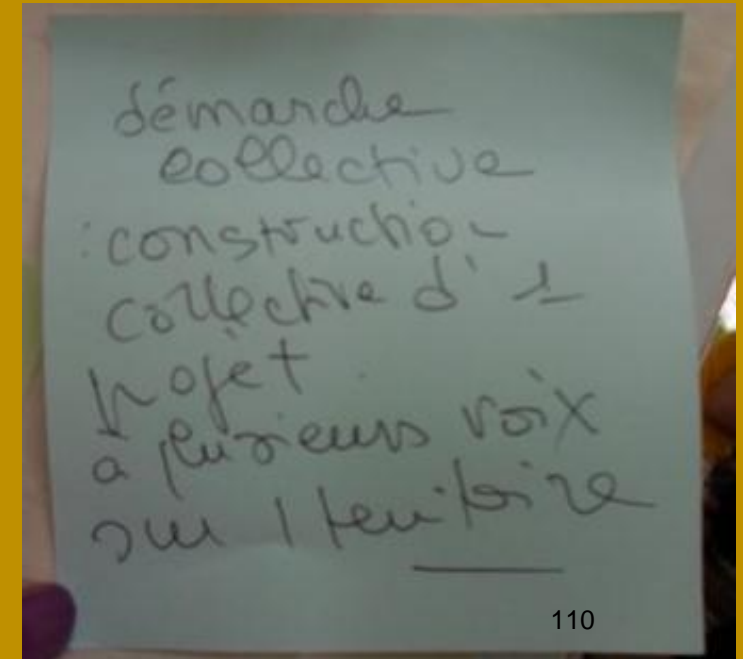 démarche
collective
: construction
collective d'1
projet
à plusieurs voix
sur 1 territoire
110